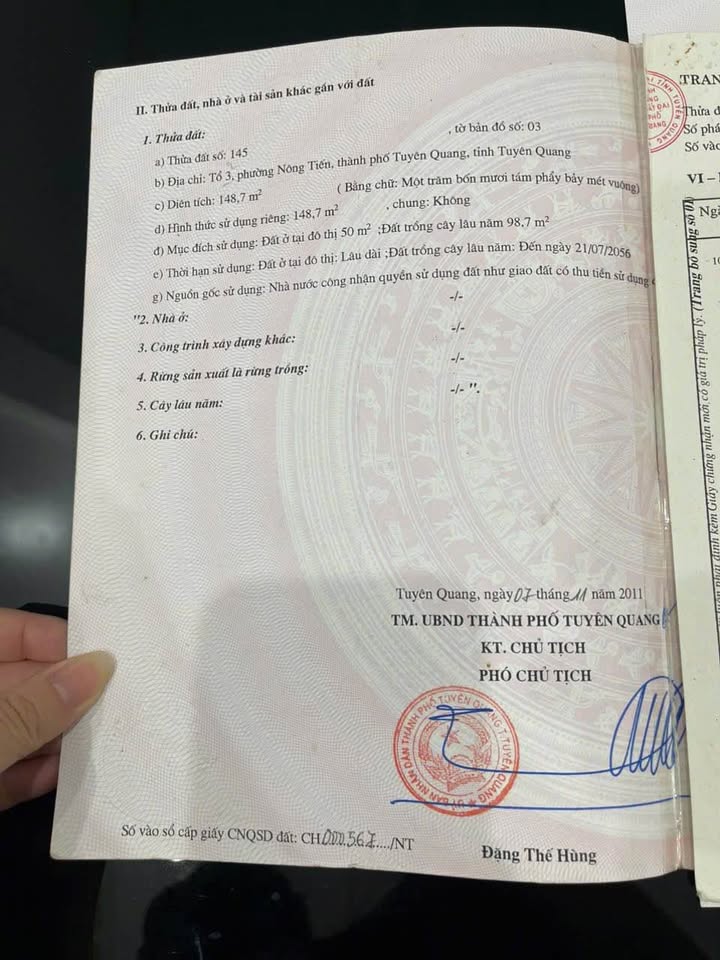 II. Thửa đất, nhà ở và tài sản khác gắn với đất
1. Thửa đất:
a) Thửa đất số: 145 , tờ bản đồ số: 03
b) Địa chỉ: Tổ 3, phường Nông Tiến, thành phố Tuyên Quang, tỉnh Tuyên Quang
c) Diện tích: 148,7 m² ( Bằng chữ: Một trăm bốn mươi tám phẩy bảy mét vuông)
d) Hình thức sử dụng riêng: 148,7 m² , chung: Không
đ) Mục đích sử dụng: Đất ở tại đô thị 50 m² ;Đất trồng cây lâu năm 98,7 m²
e) Thời hạn sử dụng: Đất ở tại đô thị: Lâu dài ;Đất trồng cây lâu năm: Đến ngày 21/07/2056
g) Nguồn gốc sử dụng: Nhà nước công nhận quyền sử dụng đất như giao đất có thu tiền sử dụng
"2. Nhà ở: -/-
3. Công trình xây dựng khác: -/-
4. Rừng sản xuất là rừng trồng: -/-
5. Cây lâu năm: -/- ".
6. Ghi chú:
Tuyên Quang, ngày 07 tháng 11 năm 2011
TM. UBND THÀNH PHỐ TUYÊN QUANG
KT. CHỦ TỊCH
PHÓ CHỦ TỊCH
ỦY BAN NHÂN DÂN THÀNH PHỐ TUYÊN QUANG T.TUYÊN QUANG
Đặng Thế Hùng
Số vào sổ cấp giấy CNQSD đất: CH..../NT
TRAN
Thửa đ
Số phá
Số vào
VI –
Ngà
Giấy chứng nhận mới có giá trị pháp lý. (Trang bổ sung số 01)